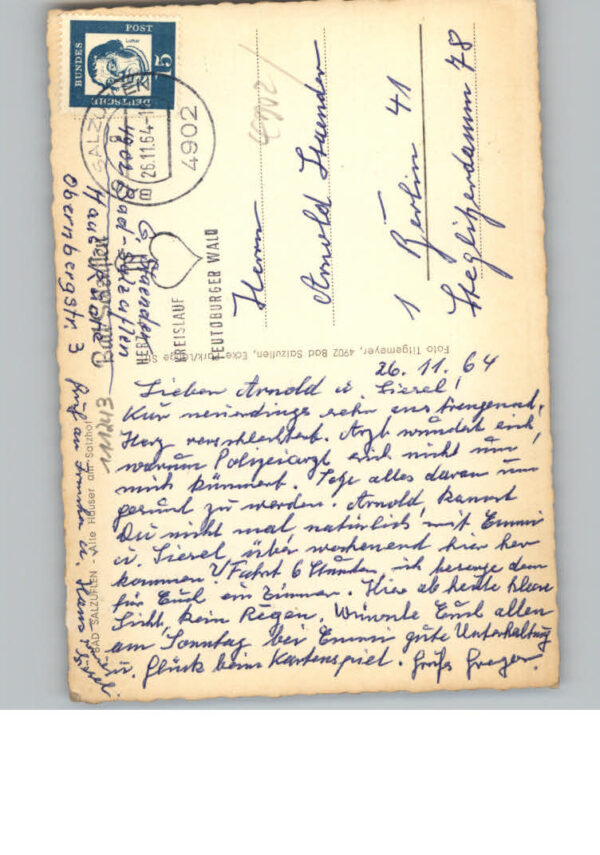 DEUTSCHE
BUNDES
POST
Luther
15
26.11.64-1
4902
HERZ
KREISLAUF
TEUTOBURGER WALD
4902
Herrn
Arnold
1 Berlin 41
Steglitzerdamm 78
4902 Bad-Salzuflen
Obernbergstr. 3
Foto Titgemeyer, 4902 Bad Salzuflen, Ecke
BAD SALZUFLEN - Alte Häuser am Salzhof
26. 11. 64
Lieben Arnold u. Liesel!
Kur neuerdings sehr anstrengend,
Herz verschlechtert. Arzt wundert sich,
warum Polizeiarzt sich nicht um
mich kümmert. Lege alles daran um
gesund zu werden. Arnold, kannst
Du nicht mal, natürlich mit Emmi
u. Liesel, über wochenend hier her
kommen? Fahrt 6 Stunden, ich besorge dann
für Euch ein Zimmer. Hier ab heute klare
Sicht, kein Regen. Wünsche Euch allen
am Sonntag bei Emmi gute Unterhaltung
u. Glück beim Kartenspiel. Gruß